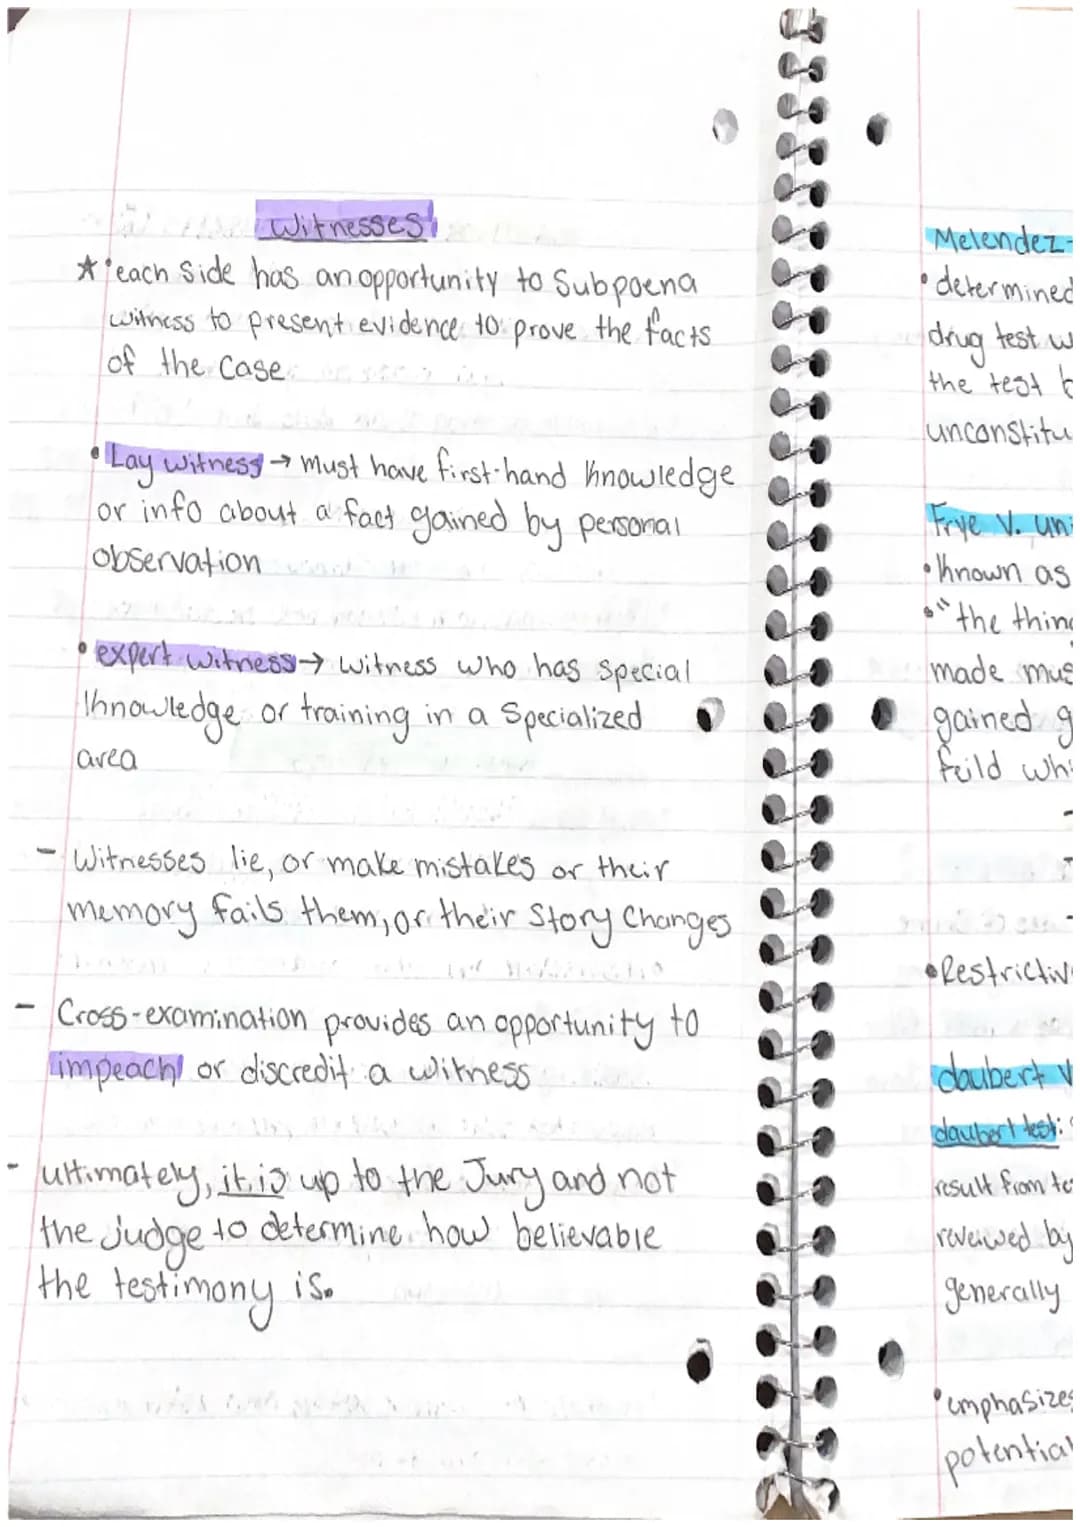 Witnesses
★ •each side has an opportunity to Subpoena
witness to present evidence to prove the facts
of the case
• Lay witness → must have first-hand knowledge
or info about a fact gained by personal
observation
• expert witness → witness who has special
knowledge or training in a specialized
area
- Witnesses lie, or make mistakes or their
memory fails them, or their Story Changes
- Cross-examination provides an opportunity to
impeach or discredit a witness
- ultimately, it is up to the Jury and not
the judge to determine how believable
the testimony is.
Melendez-
• determined
drug test w
the test b
unconstitu
Frye v. un
• known as
• "the thing
made mus
gained g
feild whi
• Restrictiv
daubert v
daubert test:
result from te
reveiwed by
generally
• emphasizes
potential